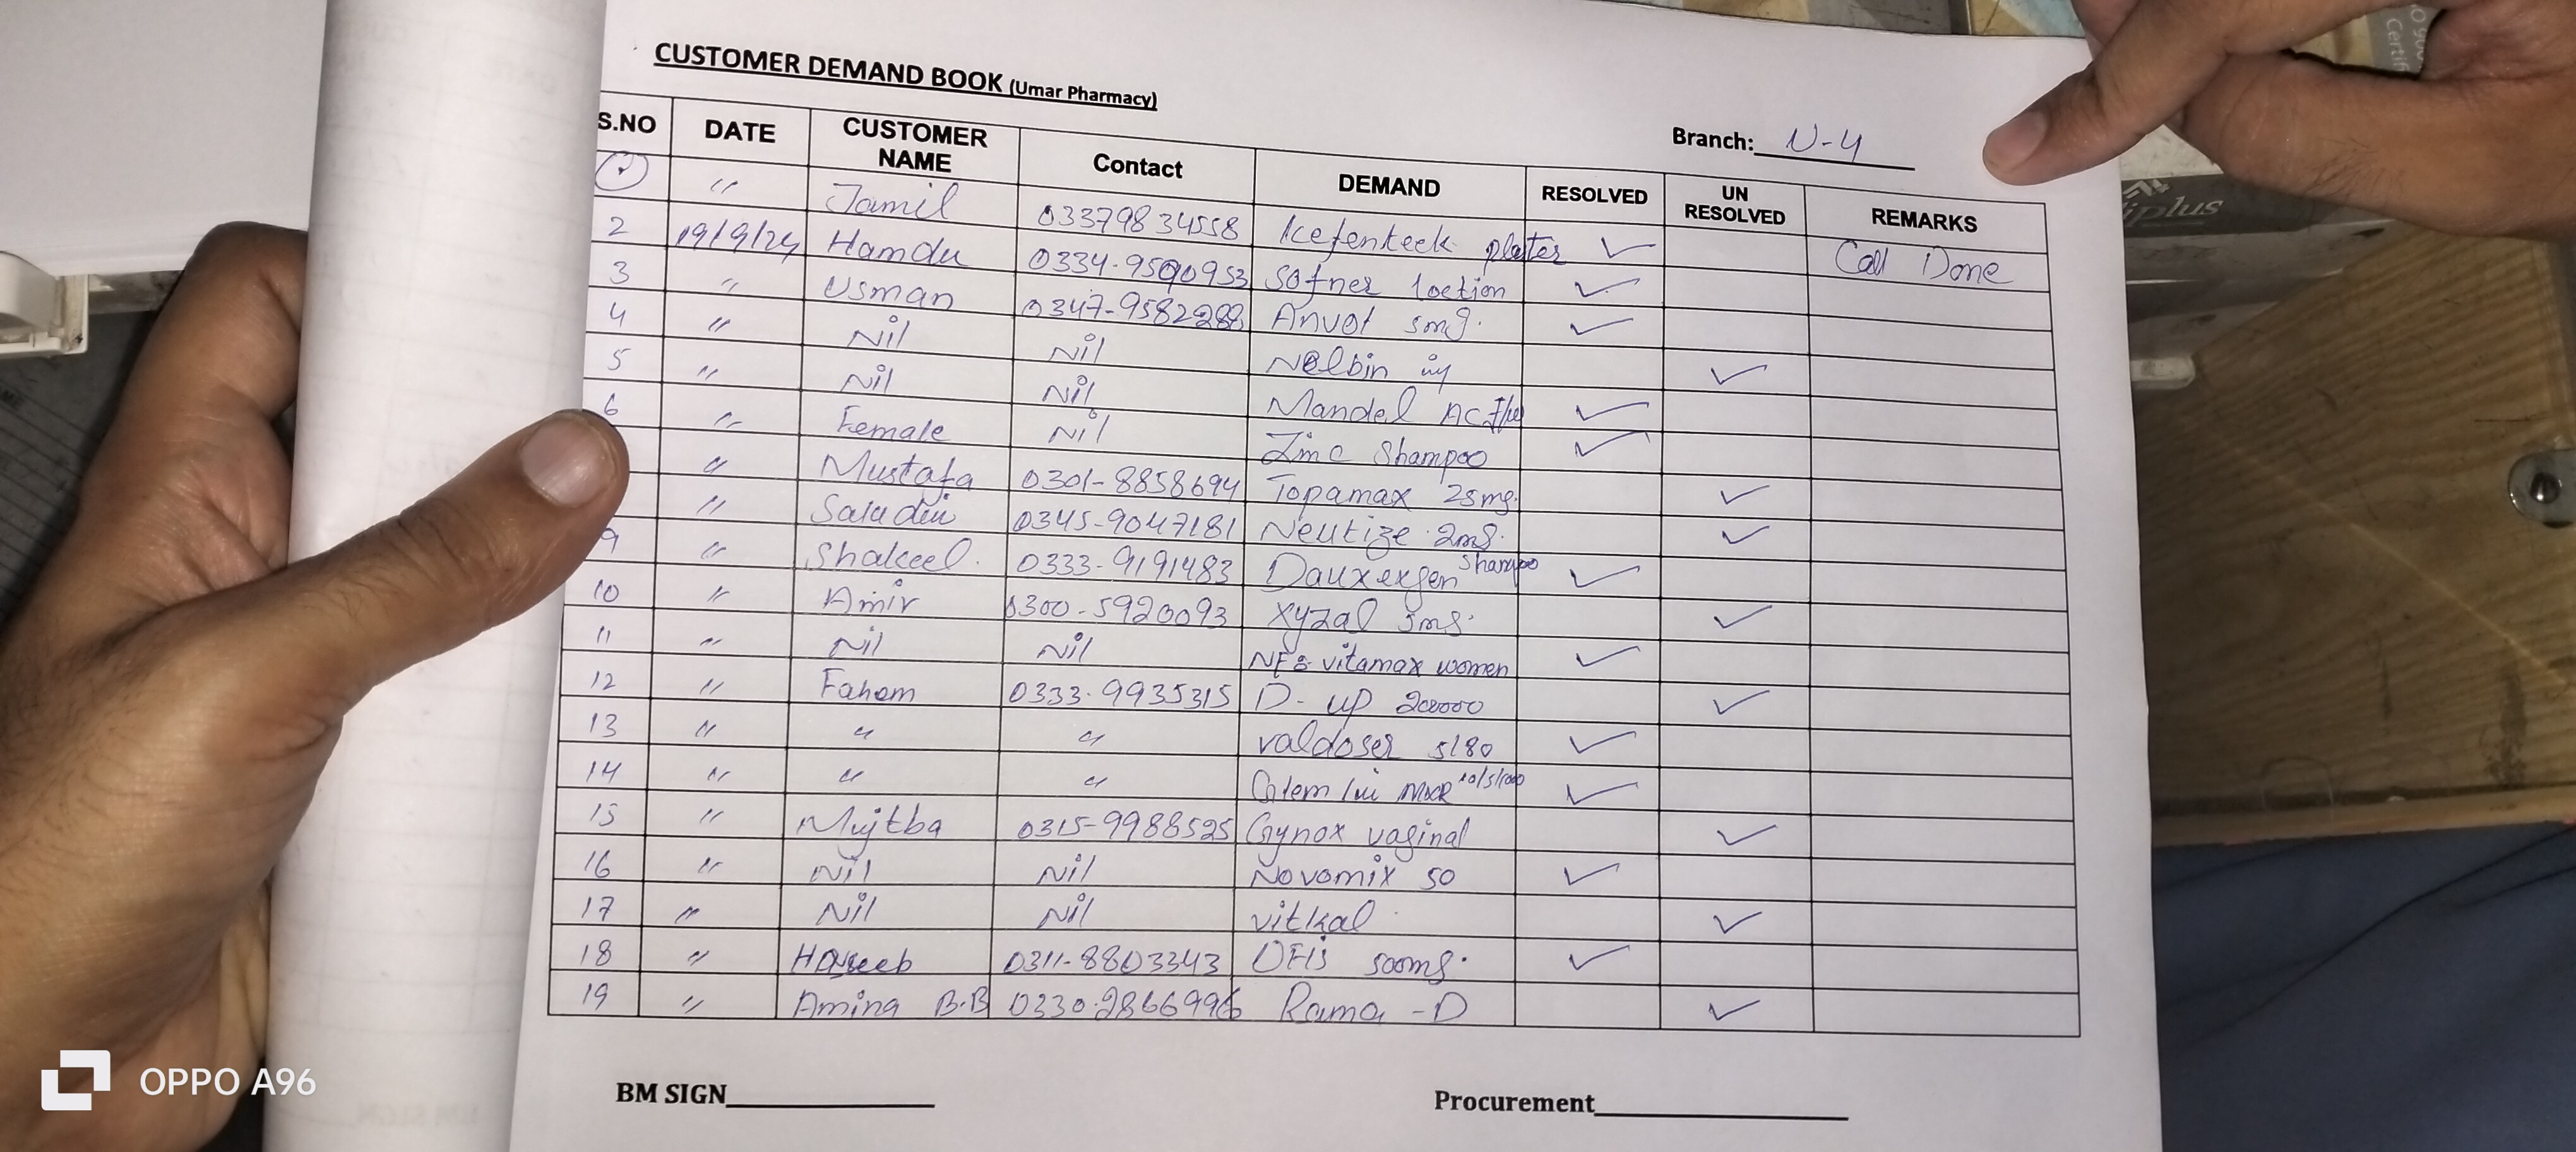 CUSTOMER DEMAND BOOK (Umar Pharmacy)
Branch: U-4
S.NO DATE CUSTOMER NAME Contact DEMAND RESOLVED UN RESOLVED REMARKS
〃 Jamil 03379834558 Kefenteck plaster ✓ Call Done
2 19/9/24 Hamdu 0334-9590953 Sofner loetion ✓
3 〃 Usman 0347-9582288 Anvol 5mg. ✓
4 〃 Nil Nil Nelbin inj ✓
5 〃 Nil Nil Mandel AC ✓
6 〃 Female Nil Zinc Shampoo ✓
〃 Mustafa 0301-8858694 Topamax 25mg. ✓
〃 Saladin 0345-9047181 Neutize 2mg. ✓
9 〃 Shakeel. 0333-9191483 Dauxexgen Shampo ✓
10 〃 Amir 0300-5920093 Xyzal 5mg. ✓
11 〃 Nil Nil NFS vitamax women ✓
12 〃 Fahem 0333-9935315 D-up 200000 ✓
13 〃 〃 〃 valdoser 5/80 ✓
14 〃 〃 〃 10/5/1000 ✓
15 〃 Mujtba 0315-9988525 Gynox vaginal ✓
16 〃 Nil Nil Novomix 50 ✓
17 〃 Nil Nil vitkal ✓
18 〃 Haseeb 0311-8803343 500mg. ✓
19 〃 Amina B.B 0330-2866996 Rama-D ✓
BM SIGN
Procurement
OPPO A96